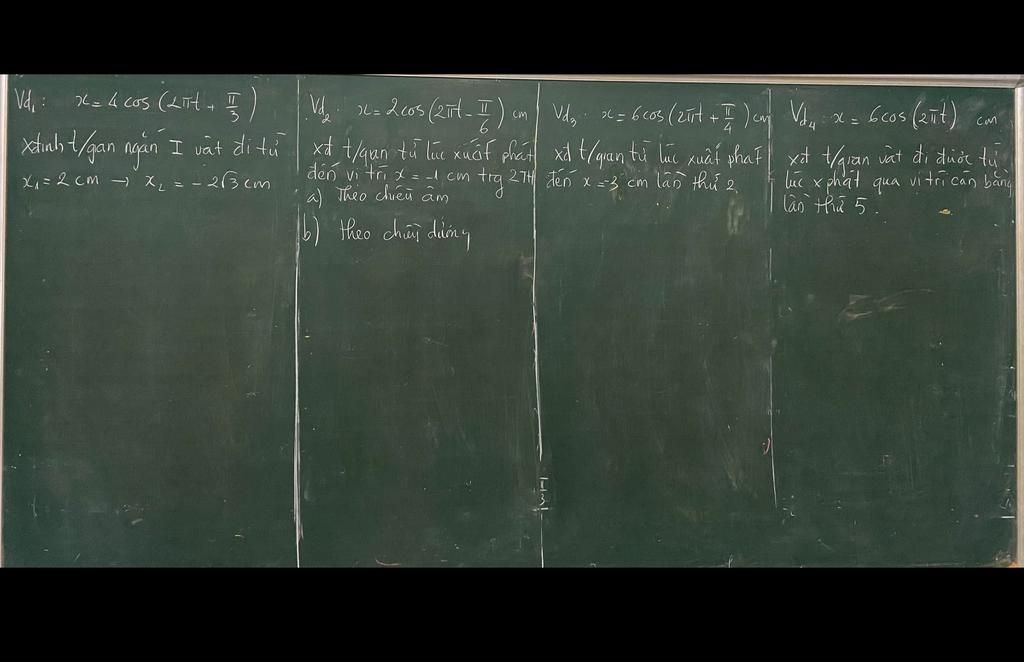 Vd₁: x = 4 cos (2πt + π/3)
Xđịnh t/gan ngắn I vật đi từ
x₁ = 2 cm → x₂ = -2√3 cm
Vd₂: x = 2cos (2πt - π/6) cm
xđ t/gian từ lúc xuất phát
đến vị trí x = -1 cm trg 2TH
a) Theo chiều âm
b) Theo chiều dương
Vd₃: x = 6cos (2πt + π/4) cm
xđ t/gian từ lúc xuất phát
đến x = -3 cm lần thứ 2
π/3
Vd₄: x = 6cos (2πt) cm
xđ t/gian vật đi được từ
lúc x phát qua vị trí cân bằng
lần thứ 5.